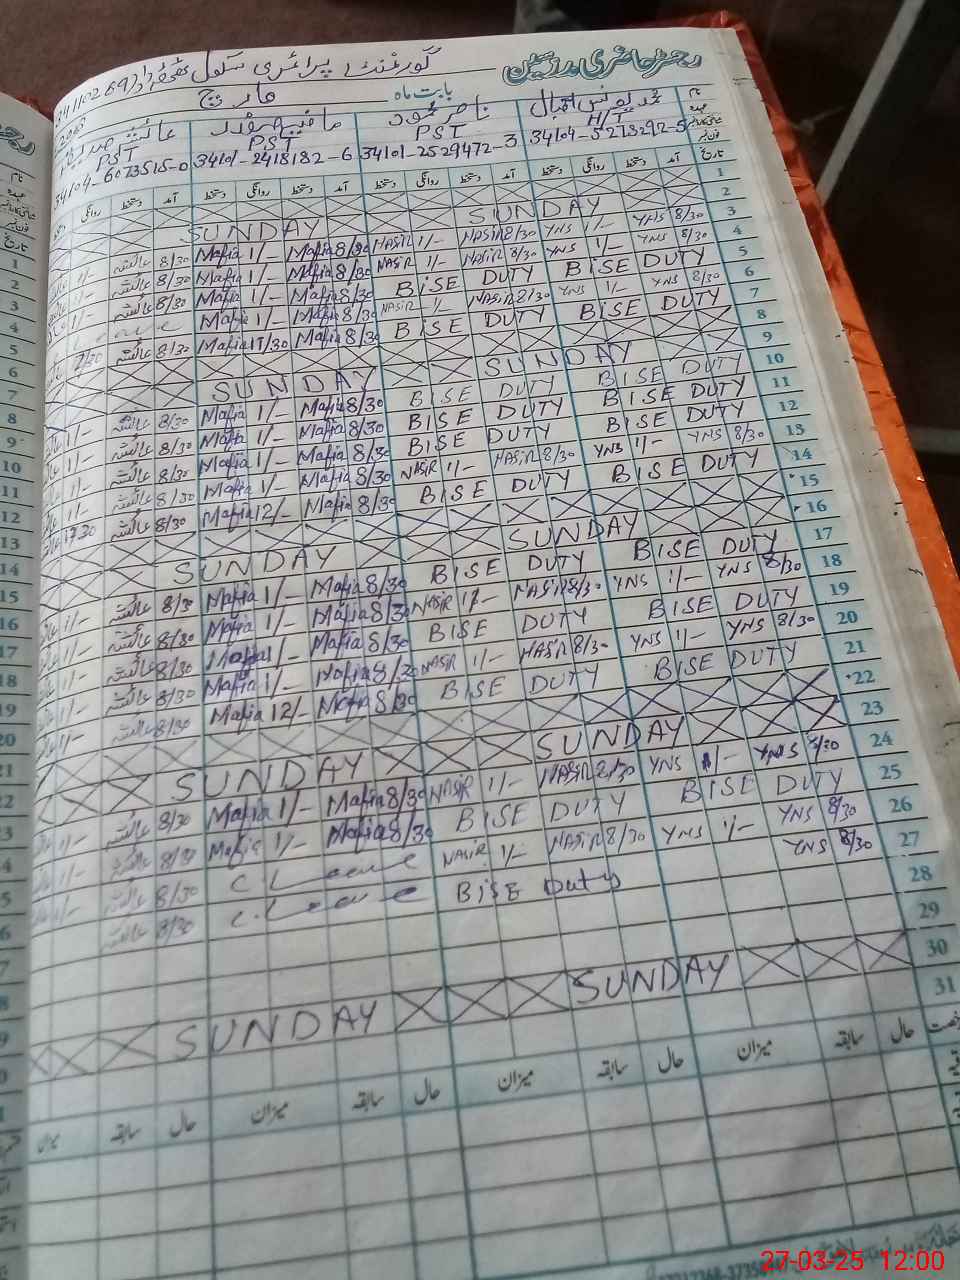 رجسٹر حاضری مدرسین گورنمنٹ پرائمری سکول
بابت ماہ مارچ
نام محمد یونس اقبال ناصر محمود مافیہ صفدر عائشہ صدیقہ
عہدہ H/T PST PST PST
34104-5273292-5 34101-2529472-3 34101-2418182-6 34104-6073515-0
تاریخ آمد دستخط روانگی دستخط آمد دستخط روانگی دستخط آمد دستخط روانگی دستخط آمد دستخط روانگی
1
2 SUNDAY SUNDAY
3 8/30 YNS 1/- YNS 8/30 NASIR 1/- NASIR 8/30 Mafia 1/- Mafia 8/30 عائشہ 1/-
4 8/30 YNS 1/- YNS 8/30 NASIR 1/- NASIR 8/30 Mafia 1/- Mafia 8/30 عائشہ 1/-
5 BISE DUTY BISE DUTY 8/30 Mafia 1/- Mafia 8/30 عائشہ 1/-
6 8/30 YNS 1/- YNS 8/30 NASIR 1/- NASIR 8/30 Mafia 1/- Mafia
7 BISE DUTY BISE DUTY 8/30 Mafia Mafia 8/30 عائشہ
8
9 SUNDAY SUNDAY
10 BISE DUTY BISE DUTY 8/30 Mafia 1/- Mafia 8/30 عائشہ 1/-
11 BISE DUTY BISE DUTY 8/30 Mafia 1/- Mafia 8/30 عائشہ 1/-
12 BISE DUTY BISE DUTY 8/30 Mafia 1/- Mafia 8/30 عائشہ 1/-
13 8/30 YNS 1/- YNS 8/30 NASIR 1/- NASIR 8/30 Mafia 1/- Mafia 8/30 عائشہ 1/-
14 BISE DUTY BISE DUTY 8/30 Mafia 12/- Mafia 8/30 عائشہ
15
16 SUNDAY SUNDAY
17 BISE DUTY BISE DUTY 8/30 Mafia 1/- Mafia 8/30 عائشہ 1/-
18 8/30 YNS 1/- YNS 8/30 NASIR 1/- NASIR 8/30 Mafia 1/- Mafia 8/30 عائشہ 1/-
19 BISE DUTY BISE DUTY 8/30 Mafia 1/- Mafia 8/30 عائشہ 1/-
20 8/30 YNS 1/- YNS 8/30 NASIR 1/- NASIR 8/30 Mafia 1/- Mafia 8/30 عائشہ 1/-
21 BISE DUTY BISE DUTY 8/30 Mafia 12/- Mafia 8/30 عائشہ 1/-
22
23 SUNDAY SUNDAY
24 8/30 YNS 1/- YNS 8/30 NASIR 1/- NASIR 8/30 Mafia 1/- Mafia 8/30 عائشہ 1/-
25 BISE DUTY BISE DUTY 8/30 Mafia 1/- Mafia 8/30 عائشہ 1/-
26 8/30 YNS 1/- YNS 8/30 NASIR 1/- NASIR C Leave 8/30 عائشہ 1/-
27 8/30 YNS BISE Duty C.Leave 8/30 عائشہ
28
29
30 SUNDAY SUNDAY
31
حال سابقہ میزان حال سابقہ میزان حال سابقہ میزان حال سابقہ میزان
27-03-25 12:00